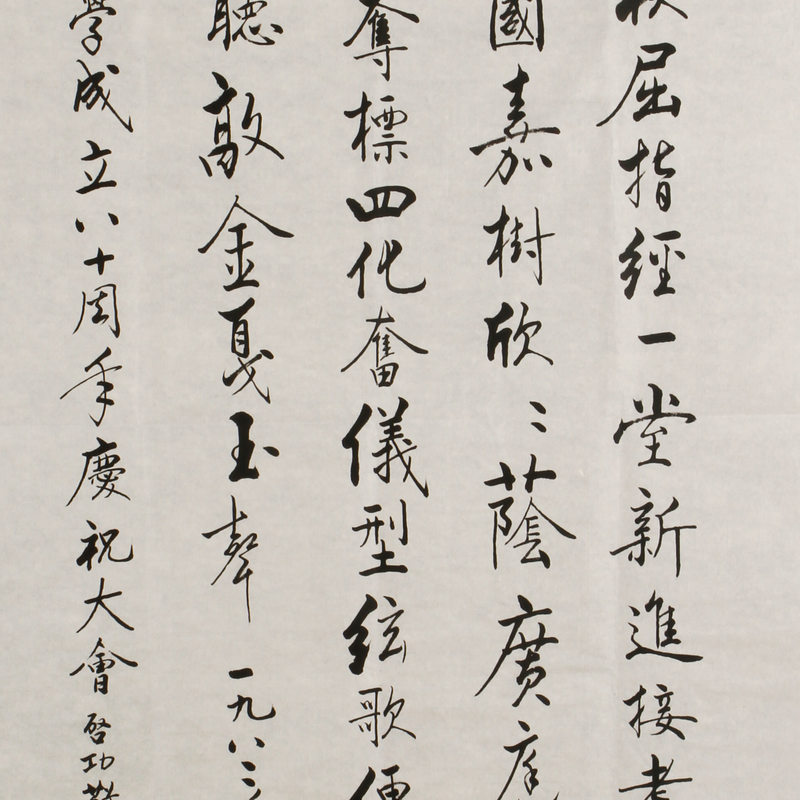 秋屈指經一堂新進接耆
國嘉樹欣〻蔭廣庭
奪標四化奮儀型絃歌便
聽敲金戛玉聲 一九八
學成立八十周年慶祝大會 啓功